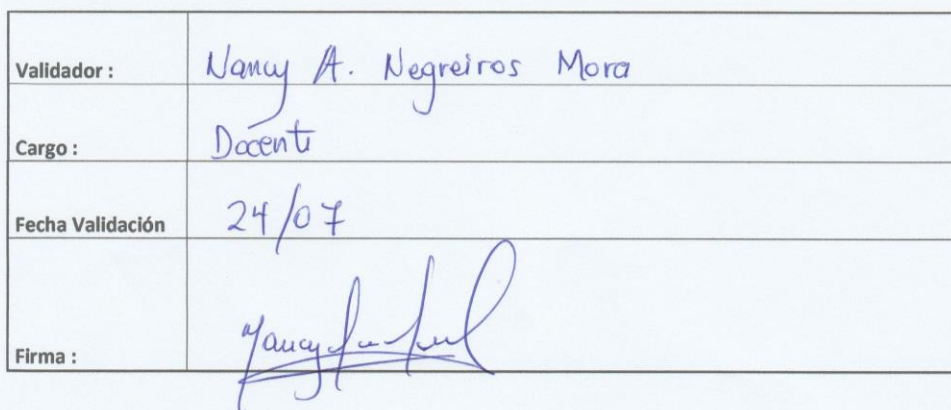 Validador : Nancy A. Negreiros Mora
Cargo : Docente
Fecha Validación 24/07
Firma : Nancy